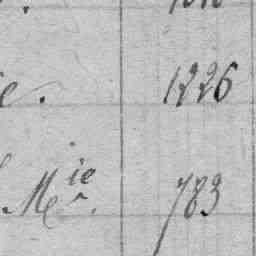 e. 1226
M.ie 783